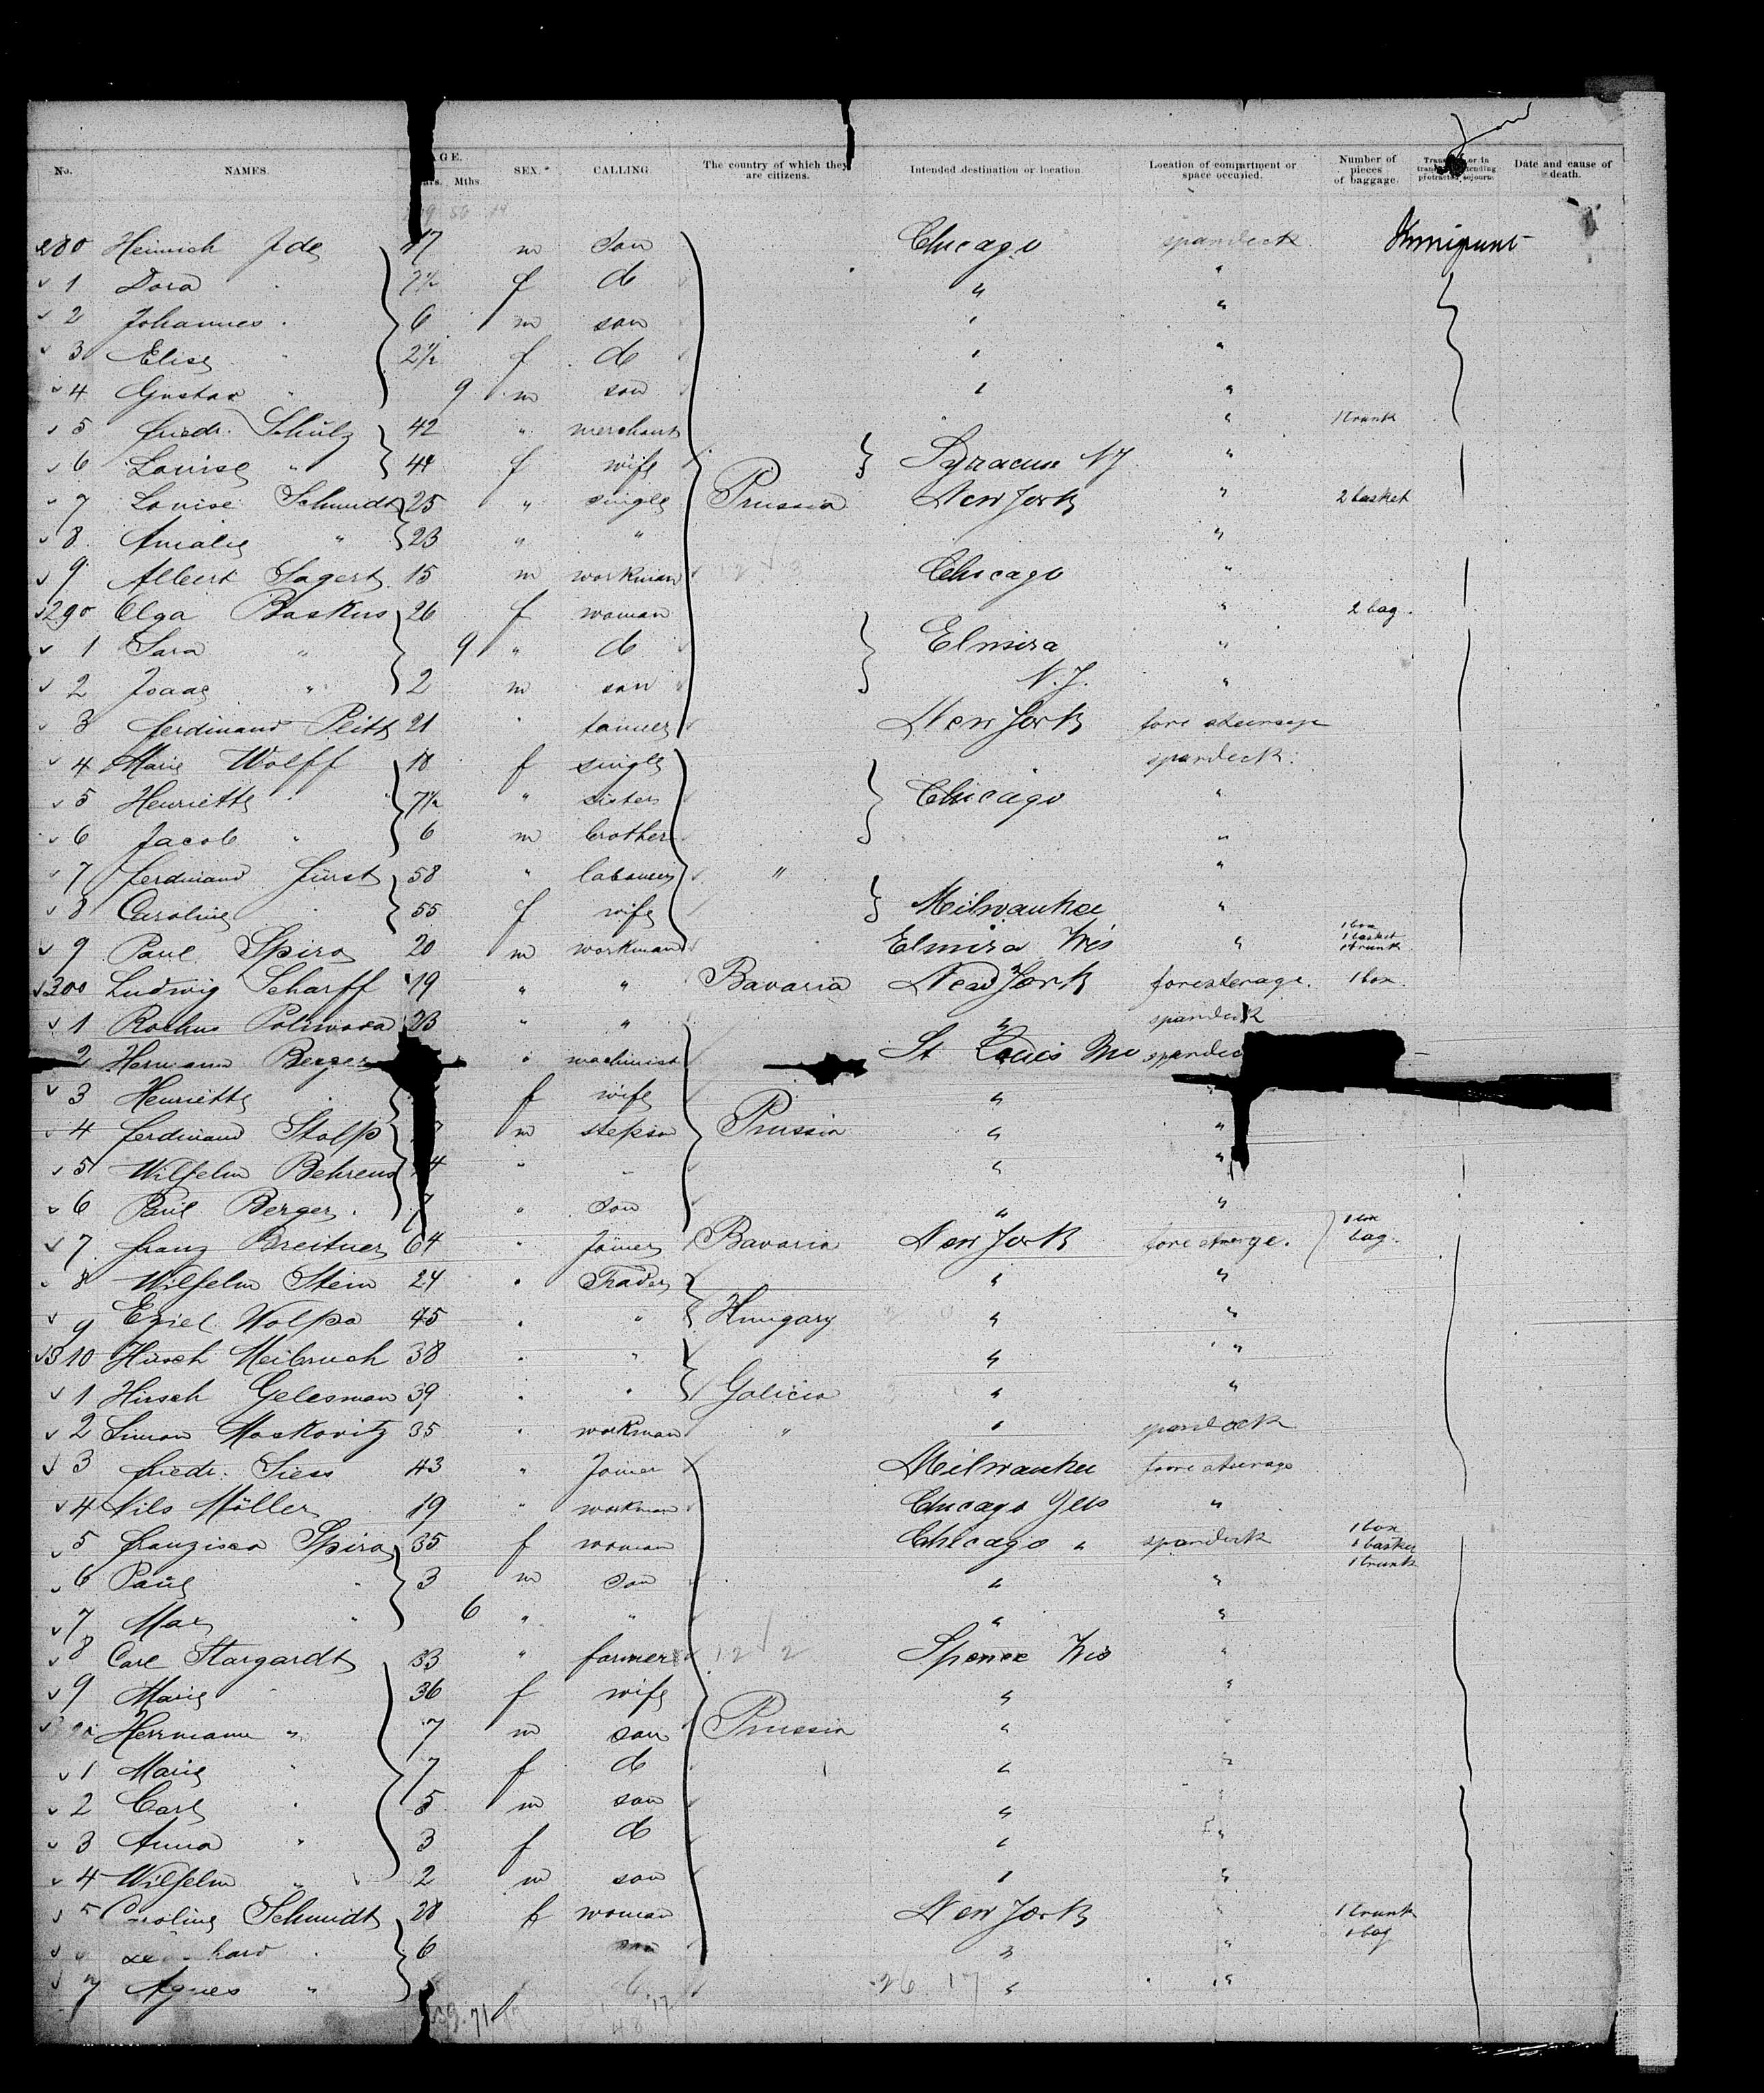 No. NAMES. AGE. Years. Mths. SEX. CALLING. The country of which they are citizens. Intended destination or location. Location of compartment or space occupied. Number of pieces of baggage. Date and cause of death.
280 Heinrich Jde 17 m Son Chicago spardeck Immigrant
1 Dora 7½ f do "
2 Johannes 6 m son " "
3 Elise " 2½ f do " "
4 Gustav " 9 m son " "
5 Friedr. Schulz 42 " merchant " 1 trunk
6 Louise " 44 f wife Syracuse NY "
7 Louise Schmidt 25 " single Prussia New York " 2 basket
8 Amalie " 23 " " "
9 Albert Sagert 15 m workman Chicago "
290 Olga Baskus 26 f woman " 2 bag.
1 Sara " 9 " do Elmira "
2 Isaac " 2 m son N.J. "
3 Ferdinand Plitt 21 " New York fore steerage
4 Marie Wolff 18 f single spardeck
5 Henriette " 7½ " sister Chicago "
6 Jacob " 6 m brother "
7 Ferdinand Fürst 58 " labourer " "
8 Caroline " 55 f wife Milwaukee "
9 Paul Spiro 20 m workman Elmira Wis " 1 box 1 basket 1 trunk
300 Ludwig Scharff 19 " " Bavaria New York foresterage. 1 box.
1 Rochus 23 " " " spardeck
2 Hermann Berger " machinist St Louis Mo
3 Henriette f wife "
4 Ferdinand Stolp m stepson Prussia " "
5 Wilhelm Behrend " " " "
6 Paul Berger. 7 " Son " "
7 Franz Breitner 64 " Joiner Bavaria New York 1 box bag.
8 Wilhelm Stein 24 " Trader " "
9 Eziel Wolpa 45 " " Hungary " "
310 Hirsch Meibruch 38 " " " "
1 Hirsch Gelesman 39 " " Galicia " "
2 Simon Moskovitz 35 " workman " " spardeck
3 Friedr. Siess 43 " Joiner Milwaukee fore steerage
4 Nils Möller 19 " workman Chicago "
5 Franzisca Spiro 35 f woman Chicago " spardeck 1 box 1 basket 1 trunk
6 Paul " 3 m Son " "
7 Max " 6 " " " "
8 Carl Stargardt 33 " farmer Spencer Wis "
9 Marie " 36 f wife " "
Herrmann " 7 m son Prussia " "
1 Marie " 7 f do " "
2 Carl " 5 m son " "
3 Anna " 3 f do " "
4 Wilhelm " 2 m son " "
5 Caroline Schmidt 28 f woman New York " 1 trunk 1 bag
6 son " "
7 Agnes " " "
26 17